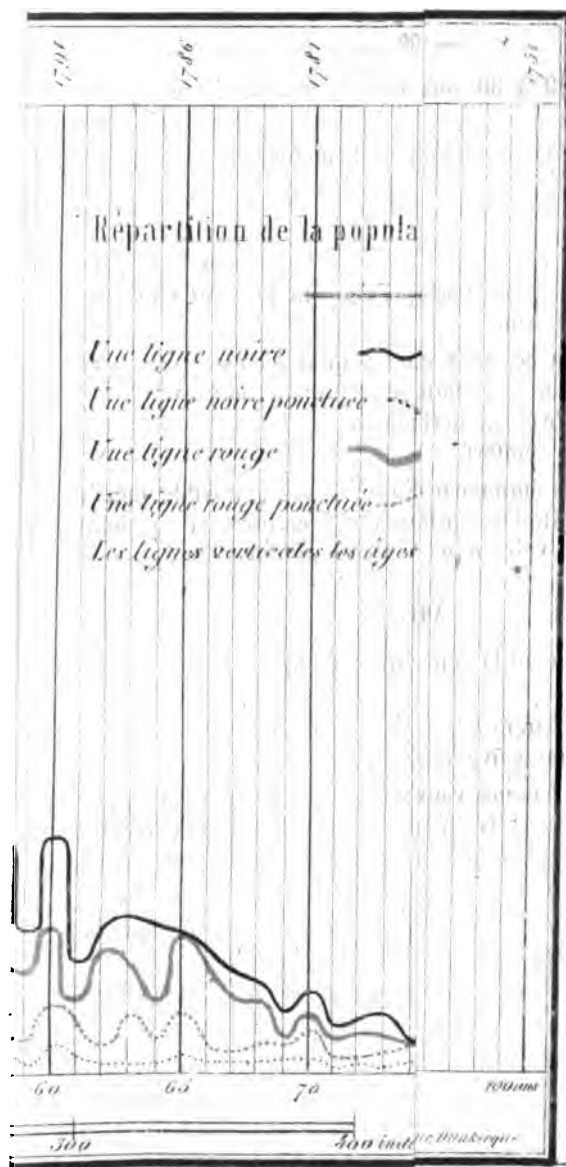 1791 1786 1781 1751
Répartition de la popula
Une ligne noire
Une ligne noire ponctuée
Une ligne rouge
Une ligne rouge ponctuée
Les lignes verticales les âges
60 65 70 100 ans
300 400 ind
Dunkerque